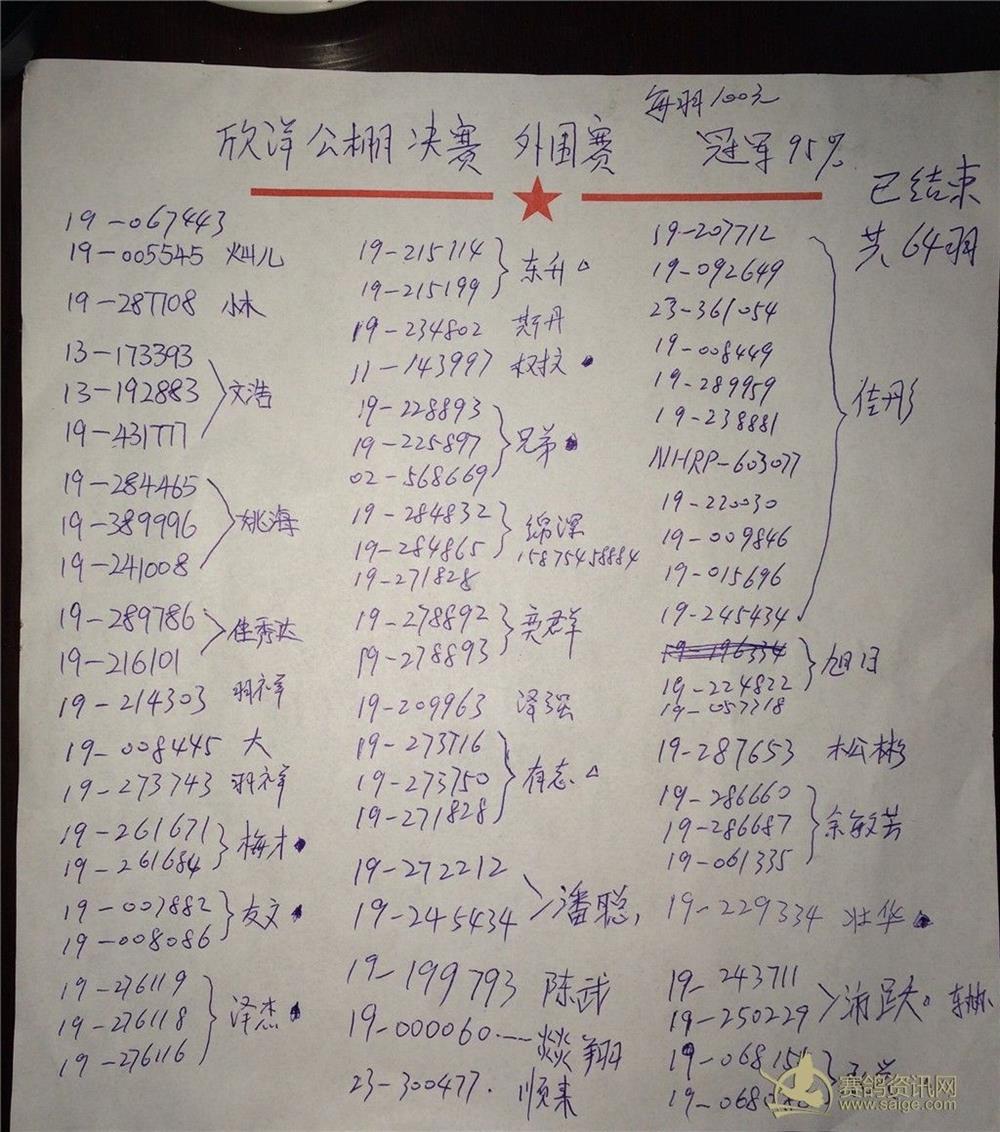 每羽100元
欣洋公棚决赛 外围赛 冠军95%
已结束
共64羽
19-067443
19-005545 灿儿
19-287108 小林
13-173393
13-192883 文浩
19-431777
19-284465
19-389996 桃海
19-241008
19-289786 佳秀达
19-216101
19-214303 羽祥
19-008445 大
19-273743 羽祥
19-261671 梅才
19-261684
19-007882 友文
19-008086
19-276119
19-276118 泽杰
19-276116
19-215114 东升
19-215199
19-234802 斯丹
11-143997 权拉
19-228893
19-225897 兄弟
02-568669
19-284832 绵深
19-284865 15875458884
19-271828
19-278892 奕群
19-278893
19-209963 泽强
19-273716
19-273750 有志
19-271828
19-272212
19-245434 潘聪
19-199793 陈武
19-000060 燚翔
23-300477 顺来
19-207712
19-092649
23-361054
19-008449
19-289959
19-238881 佳彤
NHRP-603077
19-220030
19-009846
19-015696
19-245434
19-196334 旭日
19-224822
19-057718
19-287653 松彬
19-286660
19-286687 余敏芸
19-061335
19-229334 壮华
19-243711
19-250229 海跃
19-06815
19-068
赛鸽资讯网
www.saige.com